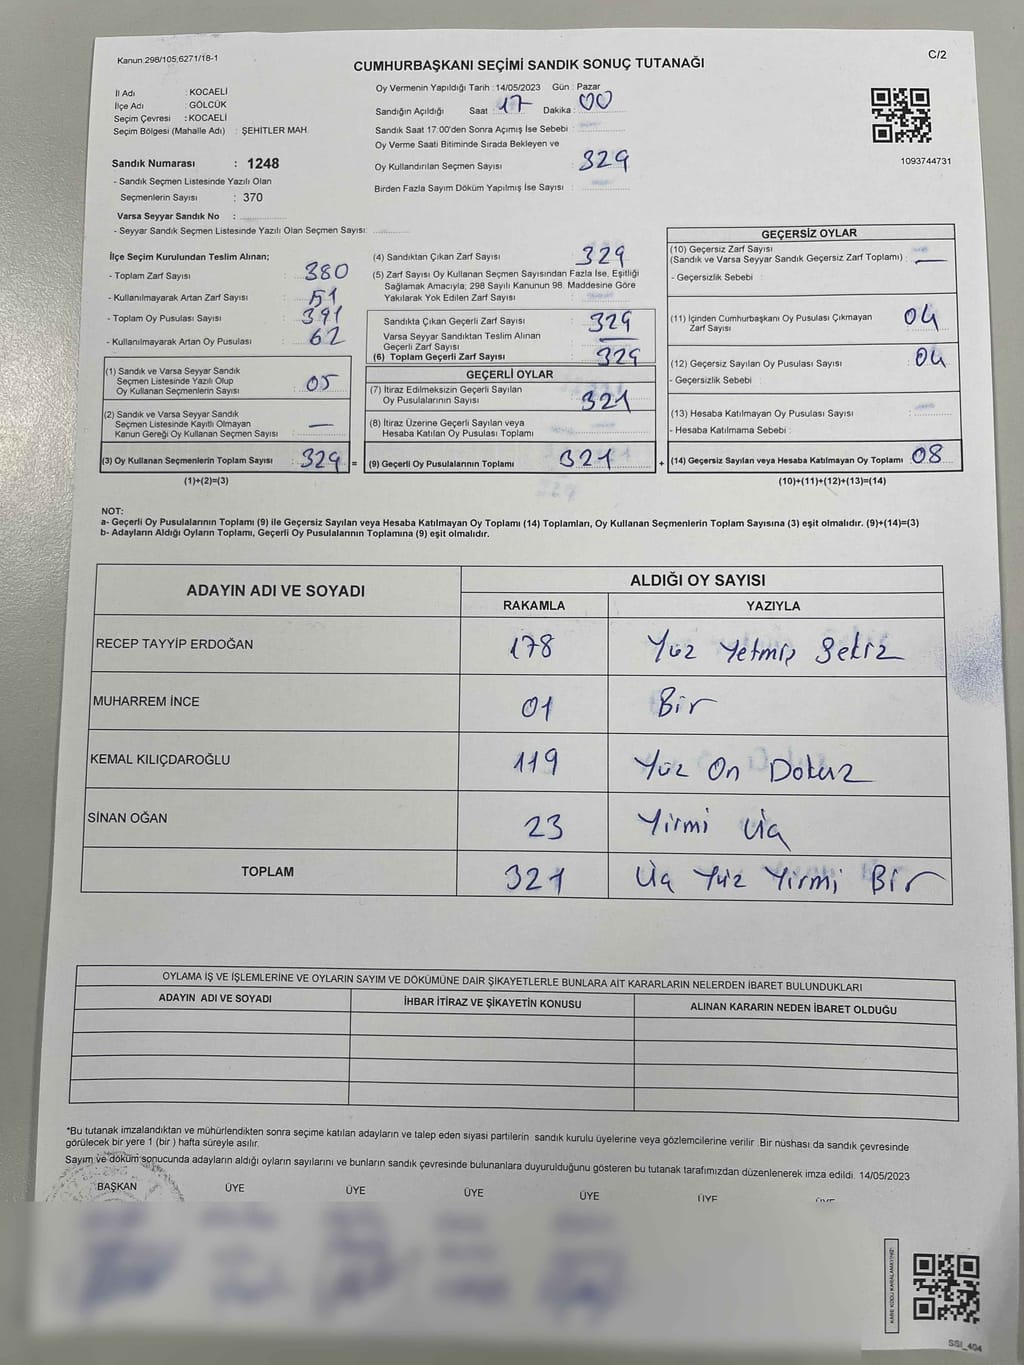 Kanun.298/105;6271/18-1
C/2
CUMHURBAŞKANI SEÇİMİ SANDIK SONUÇ TUTANAĞI
İl Adı : KOCAELİ
İlçe Adı : GÖLCÜK
Seçim Çevresi : KOCAELİ
Seçim Bölgesi (Mahalle Adı) : ŞEHİTLER MAH.
Sandık Numarası : 1248
- Sandık Seçmen Listesinde Yazılı Olan
Seçmenlerin Sayısı : 370
Varsa Seyyar Sandık No :
- Seyyar Sandık Seçmen Listesinde Yazılı Olan Seçmen Sayısı:
Oy Vermenin Yapıldığı Tarih : 14/05/2023 Gün : Pazar
Sandığın Açıldığı Saat : 17 Dakika : 00
Sandık Saat 17:00'den Sonra Açımış İse Sebebi :
Oy Verme Saati Bitiminde Sırada Bekleyen ve
Oy Kullandırılan Seçmen Sayısı : 329
Birden Fazla Sayım Döküm Yapılmış İse Sayısı :
1093744731
İlçe Seçim Kurulundan Teslim Alınan;
- Toplam Zarf Sayısı : 380
- Kullanılmayarak Artan Zarf Sayısı : 51
- Toplam Oy Pusulası Sayısı : 391
- Kullanılmayarak Artan Oy Pusulası : 62
(1) Sandık ve Varsa Seyyar Sandık
Seçmen Listesinde Yazılı Olup
Oy Kullanan Seçmenlerin Sayısı : 05
(2) Sandık ve Varsa Seyyar Sandık
Seçmen Listesinde Kayıtlı Olmayan
Kanun Gereği Oy Kullanan Seçmen Sayısı : —
(3) Oy Kullanan Seçmenlerin Toplam Sayısı : 329
(1)+(2)=(3)
(4) Sandıktan Çıkan Zarf Sayısı : 329
(5) Zarf Sayısı Oy Kullanan Seçmen Sayısından Fazla İse, Eşitliği
Sağlamak Amacıyla; 298 Sayılı Kanunun 98. Maddesine Göre
Yakılarak Yok Edilen Zarf Sayısı :
Sandıkta Çıkan Geçerli Zarf Sayısı : 329
Varsa Seyyar Sandıktan Teslim Alınan
Geçerli Zarf Sayısı :
(6) Toplam Geçerli Zarf Sayısı : 329
GEÇERLİ OYLAR
(7) İtiraz Edilmeksizin Geçerli Sayılan
Oy Pusulalarının Sayısı : 321
(8) İtiraz Üzerine Geçerli Sayılan veya
Hesaba Katılan Oy Pusulası Toplamı :
= (9) Geçerli Oy Pusulalarının Toplamı : 321 +
GEÇERSİZ OYLAR
(10) Geçersiz Zarf Sayısı
(Sandık ve Varsa Seyyar Sandık Geçersiz Zarf Toplamı) : —
- Geçersizlik Sebebi :
(11) İçinden Cumhurbaşkanı Oy Pusulası Çıkmayan
Zarf Sayısı : 04
(12) Geçersiz Sayılan Oy Pusulası Sayısı : 04
- Geçersizlik Sebebi :
(13) Hesaba Katılmayan Oy Pusulası Sayısı :
- Hesaba Katılmama Sebebi :
(14) Geçersiz Sayılan veya Hesaba Katılmayan Oy Toplamı : 08
(10)+(11)+(12)+(13)=(14)
NOT:
a- Geçerli Oy Pusulalarının Toplamı (9) ile Geçersiz Sayılan veya Hesaba Katılmayan Oy Toplamı (14) Toplamları, Oy Kullanan Seçmenlerin Toplam Sayısına (3) eşit olmalıdır. (9)+(14)=(3)
b- Adayların Aldığı Oyların Toplamı, Geçerli Oy Pusulalarının Toplamına (9) eşit olmalıdır.
ADAYIN ADI VE SOYADI ALDIĞI OY SAYISI
RAKAMLA YAZIYLA
RECEP TAYYİP ERDOĞAN 178 Yüz Yetmiş Sekiz
MUHARREM İNCE 01 Bir
KEMAL KILIÇDAROĞLU 119 Yüz On Dokuz
SİNAN OĞAN 23 Yirmi Üç
TOPLAM 321 Üç Yüz Yirmi Bir
OYLAMA İŞ VE İŞLEMLERİNE VE OYLARIN SAYIM VE DÖKÜMÜNE DAİR ŞİKAYETLERLE BUNLARA AİT KARARLARIN NELERDEN İBARET BULUNDUKLARI
ADAYIN ADI VE SOYADI İHBAR İTİRAZ VE ŞİKAYETİN KONUSU ALINAN KARARIN NEDEN İBARET OLDUĞU
*Bu tutanak imzalandıktan ve mühürlendikten sonra seçime katılan adayların ve talep eden siyasi partilerin sandık kurulu üyelerine veya gözlemcilerine verilir. Bir nüshası da sandık çevresinde
görülecek bir yere 1 (bir ) hafta süreyle asılır.
Sayım ve döküm sonucunda adayların aldığı oyların sayılarını ve bunların sandık çevresinde bulunanlara duyurulduğunu gösteren bu tutanak tarafımızdan düzenlenerek imza edildi. 14/05/2023
BAŞKAN ÜYE ÜYE ÜYE ÜYE ÜYE ÜYE
KARE KODU KARALAMAYINIZ!
SSI_404